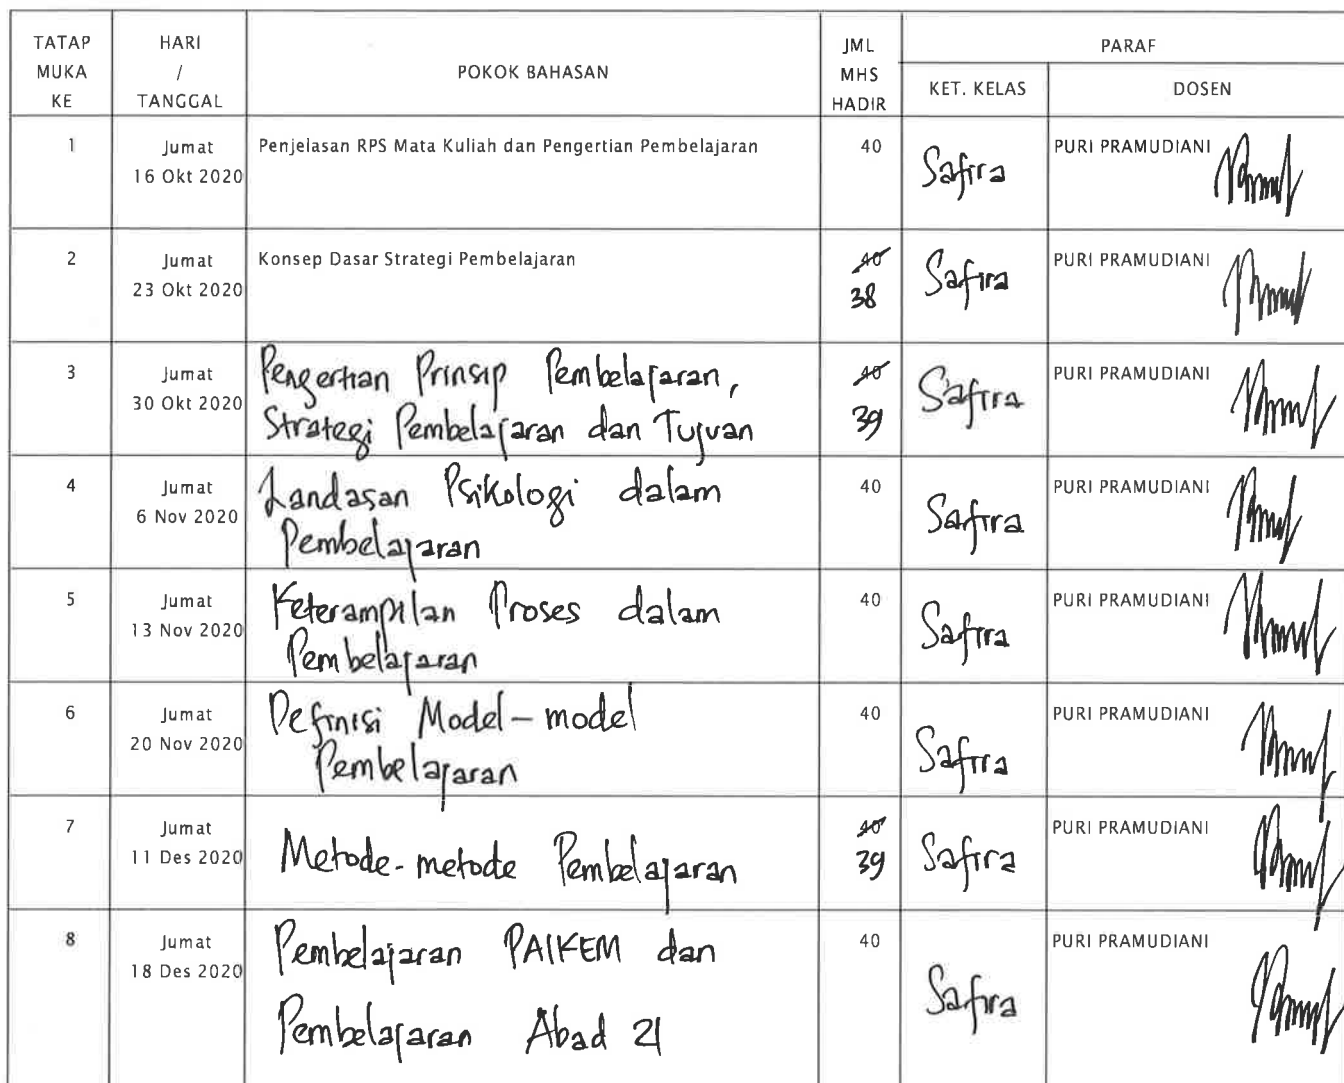 TATAP MUKA KE
HARI / TANGGAL
POKOK BAHASAN
JML MHS HADIR
PARAF
KET. KELAS
DOSEN
1
Jumat
16 Okt 2020
Penjelasan RPS Mata Kuliah dan Pengertian Pembelajaran
40
Safira
PURI PRAMUDIANI
2
Jumat
23 Okt 2020
Konsep Dasar Strategi Pembelajaran
40
38
Safira
PURI PRAMUDIANI
3
Jumat
30 Okt 2020
Pengertian Prinsip Pembelajaran,
Strategi Pembelajaran dan Tujuan
40
39
Safira
PURI PRAMUDIANI
4
Jumat
6 Nov 2020
Landasan Psikologi dalam
Pembelajaran
40
Safira
PURI PRAMUDIANI
5
Jumat
13 Nov 2020
Keterampilan Proses dalam
Pembelajaran
40
Safira
PURI PRAMUDIANI
6
Jumat
20 Nov 2020
Definisi Model-model
Pembelajaran
40
Safira
PURI PRAMUDIANI
7
Jumat
11 Des 2020
Metode-metode Pembelajaran
40
39
Safira
PURI PRAMUDIANI
8
Jumat
18 Des 2020
Pembelajaran PAIKEM dan
Pembelajaran Abad 21
40
Safira
PURI PRAMUDIANI